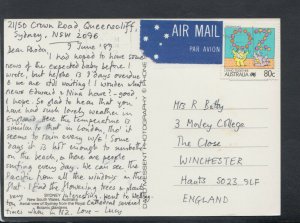 21/50 Crown Road, Queenscliff,
Sydney, NSW 2096
9 June '89
Dear Rhoda,
I had hoped to have some
news of the expected baby before I
wrote, but he/she is 13 days overdue
& we are still waiting! I wonder what
news Edward & Nina have? - good
I hope. So glad to hear that you
have had such lovely weather in
England. Here the temperature is
similar to that in London, tho' it
seems to rain every w/e! Some
days it is hot enough to sunbathe
on the beach, & there are people
surfing every day. We can see the
Pacific from all the windows in this
flat. I find the flowering trees & plants
very
New South Wales, Australia
Aerial view of Sydney from the Royal
Botanic Gardens
times when in NZ. Love - Lucy
AIR MAIL
PAR AVION
AUSTRALIA 80c
Mrs R Betty
3 Morley College
The Close
WINCHESTER
Hants SO23 9LF
ENGLAND